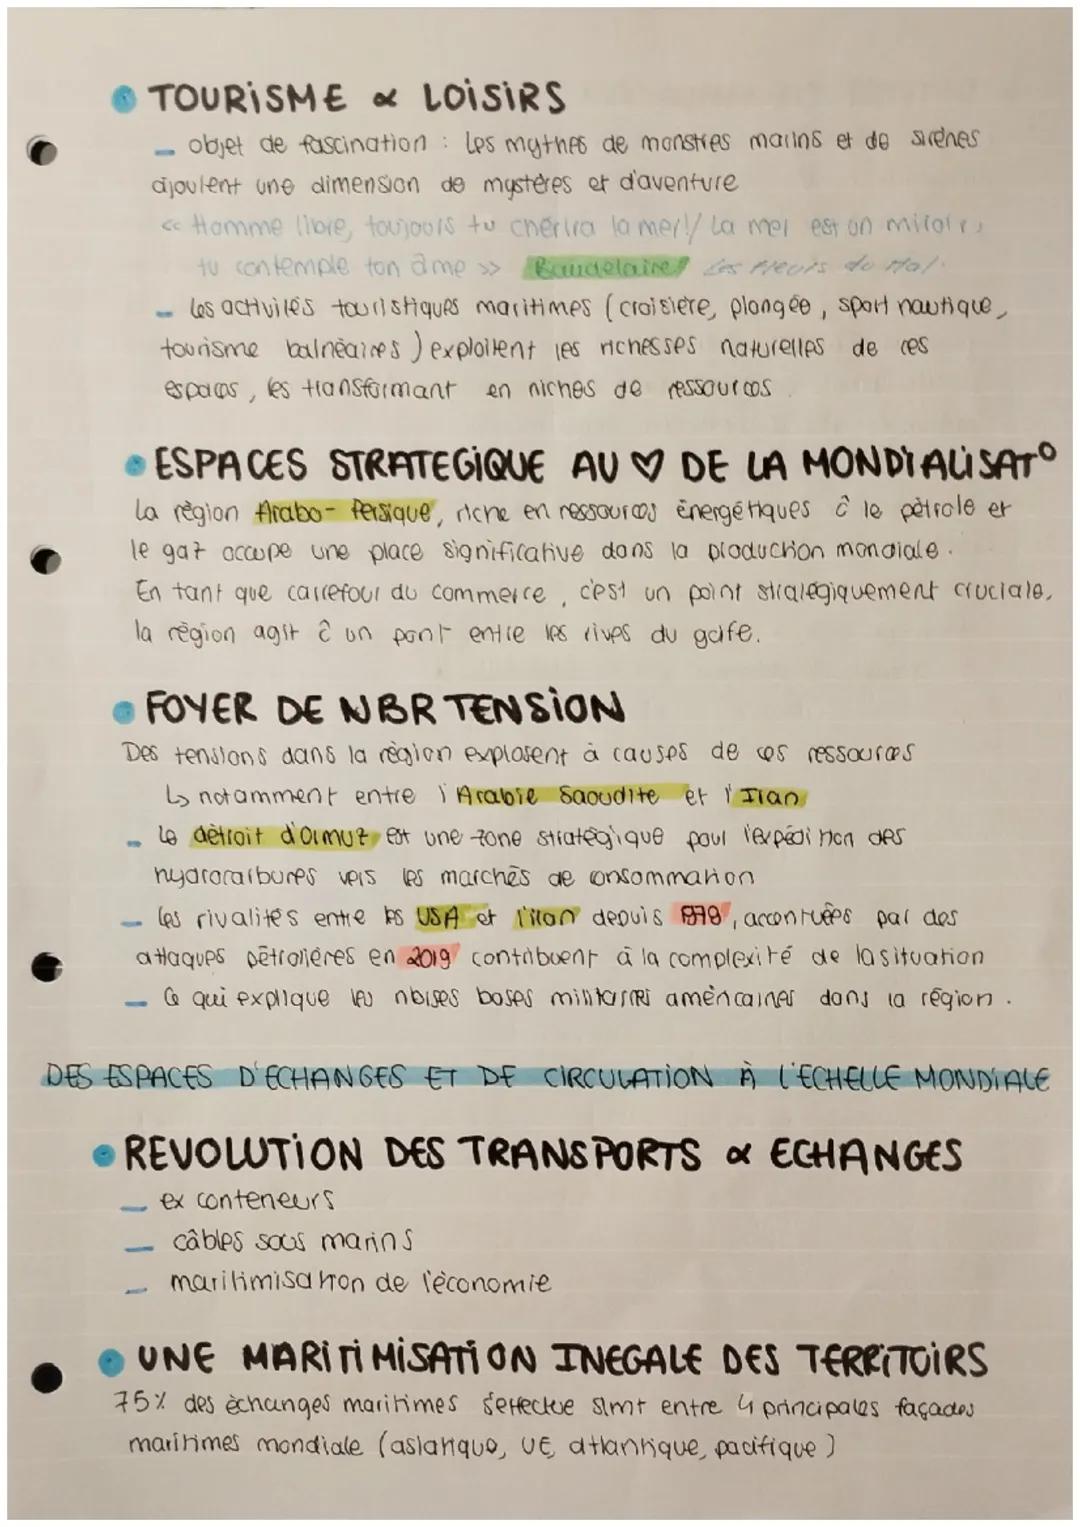 TOURISME & LOISIRS
- objet de fascination : les mythes de monstres marins et de sirènes
ajoutent une dimension de mystères et d'aventure
<< Homme libre, toujours tu chérira la mer!/ La mer est un miroir,
tu contemple ton âme >> Baudelaire Les Fleurs du Mal.
- les activités touristiques maritimes (croisière, plongée, sport nautique,
tourisme balnéaires) exploitent les richesses naturelles de ces
espaces, les transformant en niches de ressources
ESPACES STRATEGIQUE AU ♡ DE LA MONDIALISAT°
La région Arabo-Persique, riche en ressources énergétiques ĉ le pétrole et
le gaz occupe une place significative dans la production mondiale.
En tant que carrefour du commerce, c'est un point stratégiquement cruciale,
la région agit ĉ un pont entre les rives du golfe.
FOYER DE NBR TENSION
Des tensions dans la région explosent à causes de ces ressources
↳ notamment entre l'Arabie Saoudite et l'Iran
- le détroit d'Ormuz est une zone stratégique pour l'expédition des
hydrocarbures vers les marchés de consommation
- les rivalités entre les USA et l'Iran depuis 1979, accentuées par des
attaques pétrolières en 2019 contribuent à la complexité de la situation
- Ce qui explique les nbises bases militaires américaines dans la région.
DES ESPACES D'ECHANGES ET DE CIRCULATION À L'ECHELLE MONDIALE
REVOLUTION DES TRANSPORTS & ECHANGES
- ex conteneurs
- câbles sous marins
- maritimisation de l'économie
UNE MARITIMISATION INEGALE DES TERRITOIRS
75% des échanges maritimes s'effectue slmt entre 4 principales façades
maritimes mondiale (asiatique, UE, atlantique, pacifique)